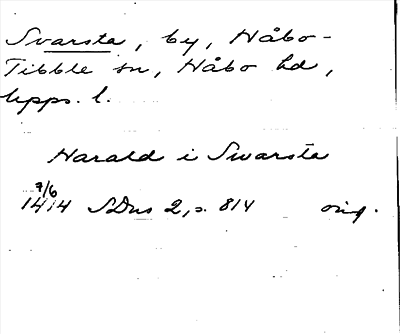 Svarsta, by, Håbo-
Tibble sn, Håbo hd,
Upps. l.
Harald i Swarsta
7/6
1414 SDns 2, s. 814 orig.